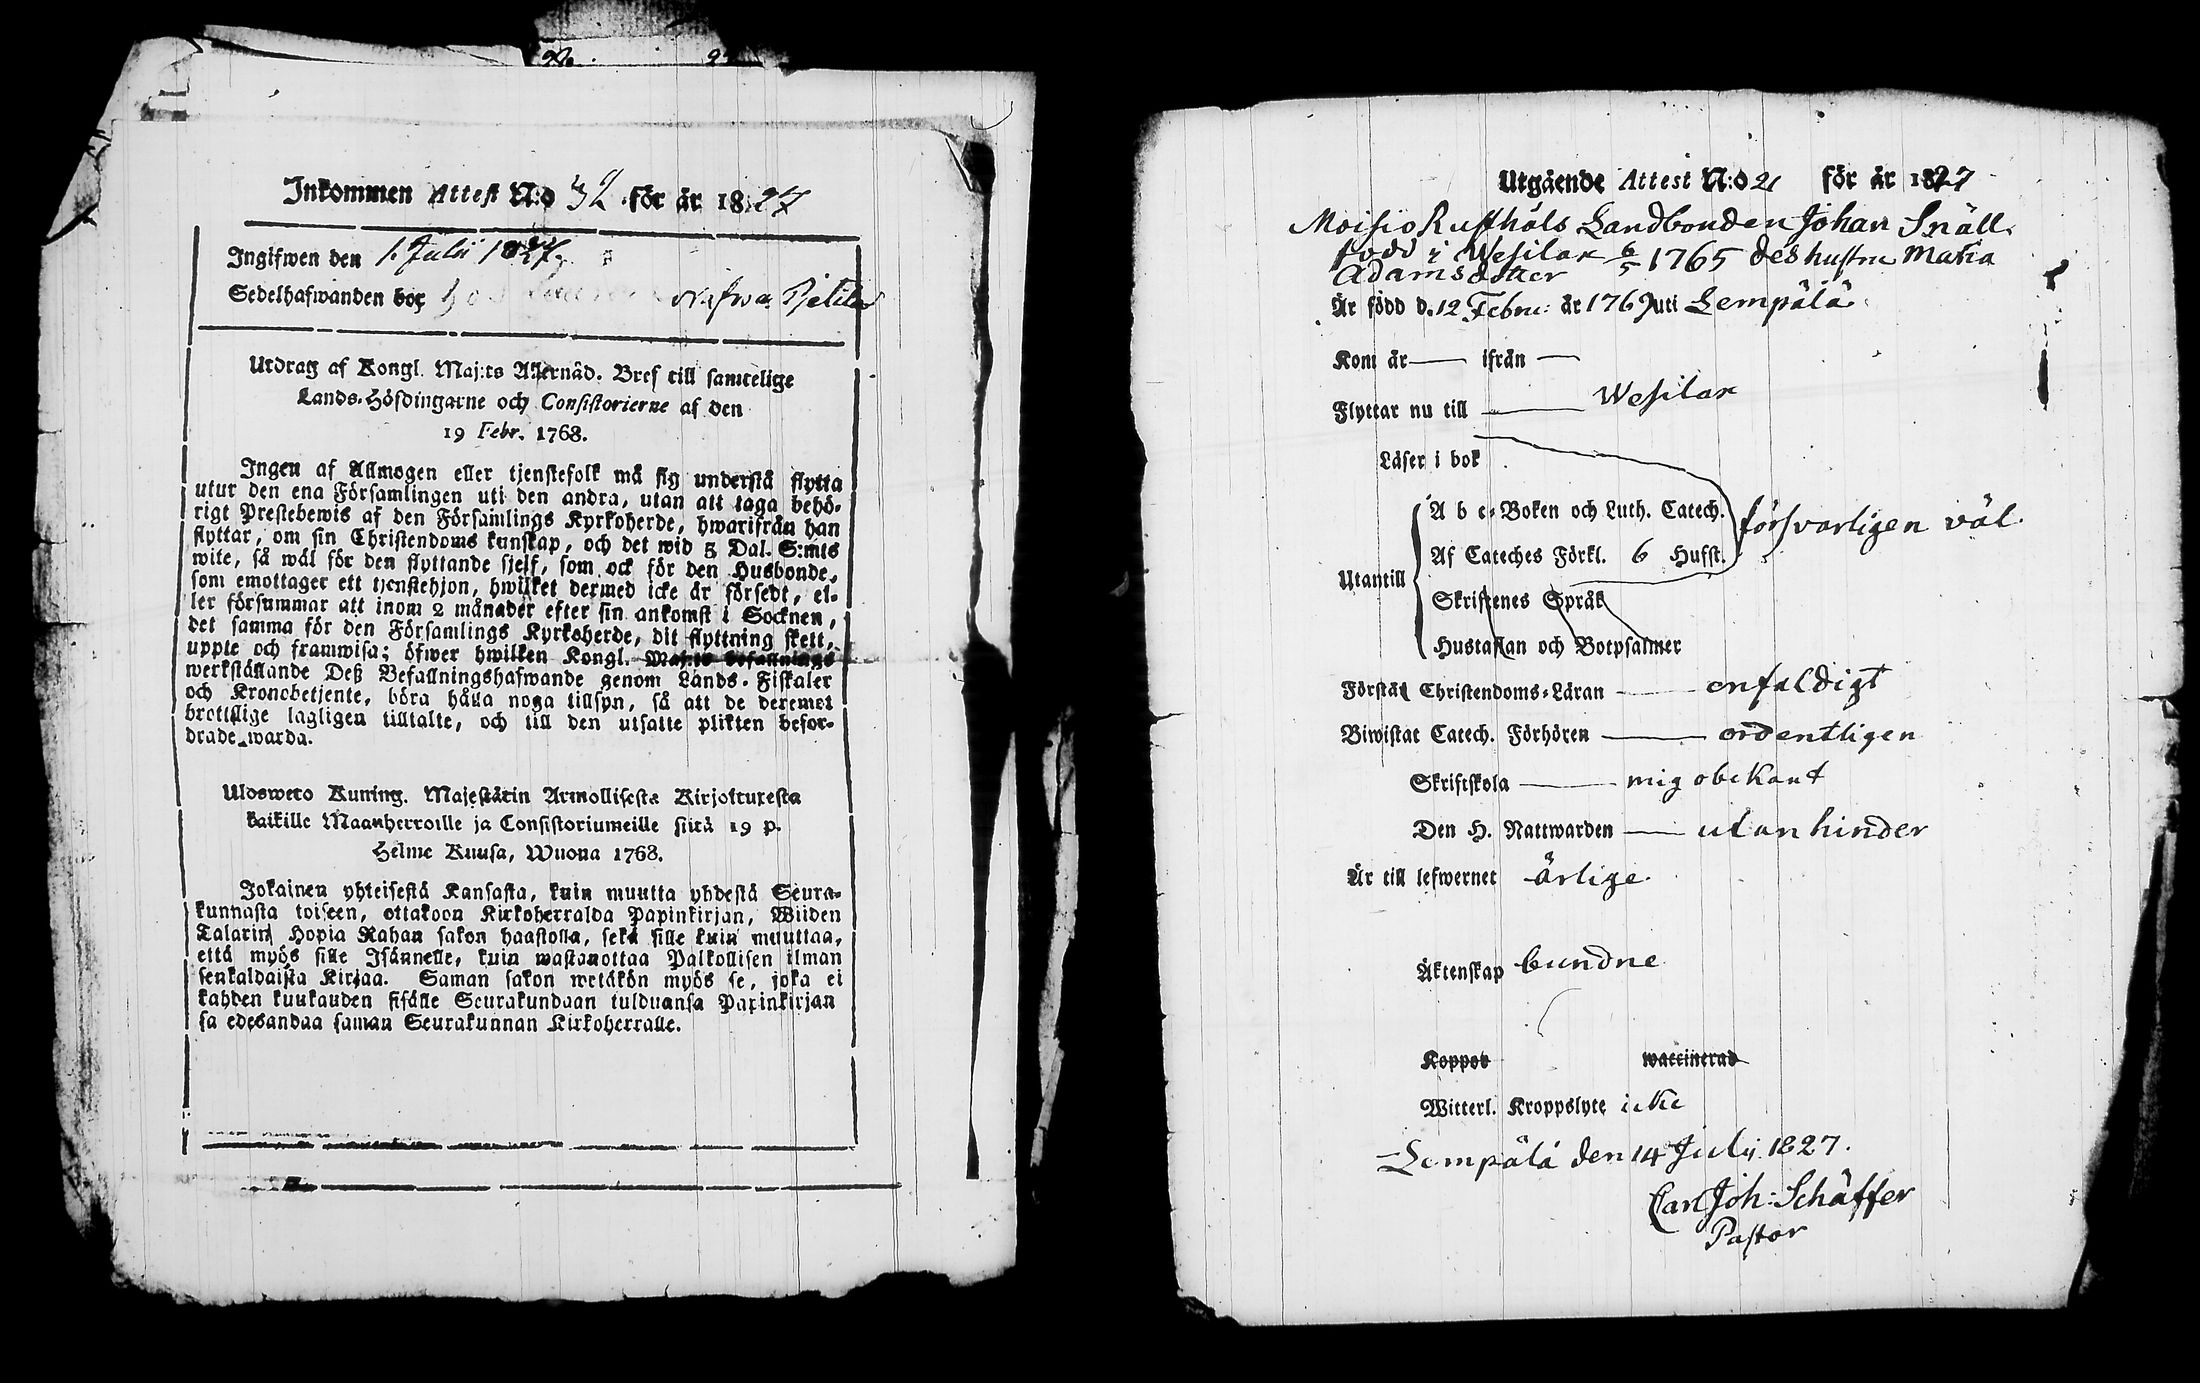 Inkommen Attest N:o 32 för är 1827
Ingifwen den 1. Julii 1827
Sedelhafwanden bor
Utdrag af Kongl. Maj:ts Allernåd. Bref till samtelige
Lands-Höfdingarne och Consistorierne af den
19 Febr. 1768.
Ingen af Allmogen eller tjenstefolk må sig understå flytta
utur den ena Församlingen uti den andra, utan att taga behö-
rigt Prestebewis af den Församlings Kyrkoherde, hwarifrån han
flyttar, om sin Christendoms kunskap, och det wid 5 Dal. S:mts
wite, så wäl för den flyttande sjelf, som ock för den Husbonde,
som emottager ett tjenstehjon, hwilket dermed icke är försedt, el-
ler försummar att inom 2 månader efter sin ankomst i Socknen,
det samma för den Församlings Kyrkoherde, dit flyttning skett,
uppte och framwisa; öfwer hwilken Kongl. Maj:ts befallnings
werkställande Deß Befallningshafwande genom Lands-Fiskaler
och Kronobetjente, böra hålla noga tillsyn, så att de deremot
brottslige lagligen tilltalte, och till den utsatte plikten befor-
drade warda.
Uloswето Kuning. Majestätin Armollisesta Kirjoituxesta
kaikille Maanherroille ja Consistoriumeille siitä 19 p.
Helme Kuusa, Wuona 1768.
Jokainen yhteisestä Kansasta, kuin muutta yhdestä Seura-
kunnasta toiseen, ottakoon Kirkoherralda Papinkirjan, Wiiden
Talarin Hopia Rahan sakon haastolla, sekä sille kuin muuttaa,
että myös sille Isännelle, kuin wastanottaa Palkollisen ilman
senkaldaista Kirjaa. Saman sakon wetäkön myös se, joka ei
kahden kuukauden sisälle Seurakundaan tulduansa Papinkirjan
sa edesandaa saman Seurakunnan Kirkoherralle.
Utgående Attest N:o 21 för år 1827
Moisio Rusthåls Landbonden Johan Snäll
född i Wesilax 6/5 1765 des hustru Maria
Adamsdotter
Är född d. 12 Febru: år 1769 uti Lempälä
Kom år — ifrån —
Flyttar nu till — Wesilax
Läser i bok
A b c-Boken och Luth. Catech. försvarligen väl
Af Cateches Förkl. 6 Hufst.
Utantill
Skriftenes Språk
Hustaflan och Botpsalmer
Förstår Christendoms-Läran — enfaldigt
Biwistat Catech. Förhören — ordentligen
Skriftskola — mig obekant
Den H. Nattwarden — utan hinder
Är till lefwernet ärlige
Äktenskap bundne
Koppor waccinerad
Witterl. Kroppslyte icke
Lempälä den 14 Julij 1827.
Carl Joh: Schäffer
Pastor